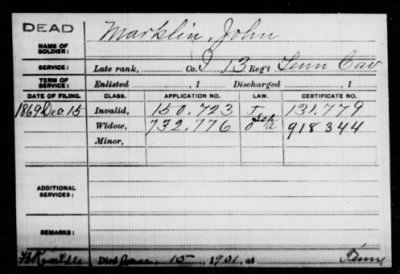 DEAD
NAME OF SOLDIER: Marklin, John
SERVICE: Late rank, Co. I 13 Reg't Tenn Cav
TERM OF SERVICE: Enlisted , 1 Discharged , 1
DATE OF FILING. CLASS. APPLICATION NO. LAW. CERTIFICATE NO.
1869 Dec 15 Invalid, 150.723 131.779
Widow, 732.776 918344
Minor,
ADDITIONAL SERVICES:
REMARKS:
Died Jan. 15 1901, at Tenn